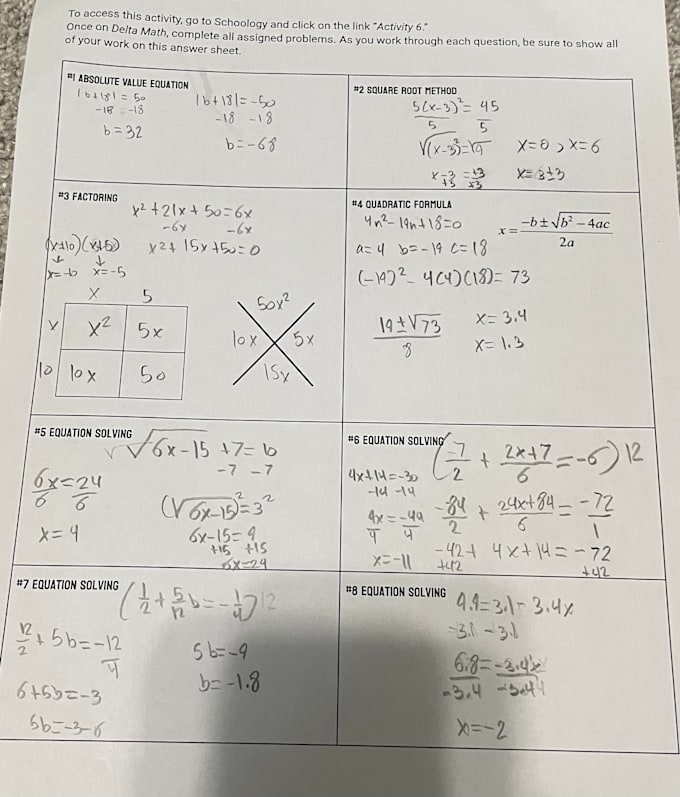 To access this activity, go to Schoology and click on the link "Activity 6."
Once on Delta Math, complete all assigned problems. As you work through each question, be sure to show all
of your work on this answer sheet.
#1 ABSOLUTE VALUE EQUATION
|b+18| = 50
-18 -18
b = 32
|b+18| = -50
-18 -18
b = -68
#2 SQUARE ROOT METHOD
5(x-3)² = 45
5 5
√(x-3)² = √9
x-3 = ±3
+3 +3
x=0, x=6
x=3±3
#3 FACTORING
x² + 21x + 50 = 6x
-6x -6x
(x+10)(x+5) x² + 15x + 50 = 0
↓ ↓
x=-10 x=-5
x 5
x x² 5x
10 10x 50
50x²
10x 5x
15x
#4 QUADRATIC FORMULA
4n² - 19n + 18 = 0
a = 4 b = -19 c = 18
x = (-b ± √(b² - 4ac)) / 2a
(-19)² - 4(4)(18) = 73
19 ± √73
8
x = 3.4
x = 1.3
#5 EQUATION SOLVING
√6x-15 + 7 = 10
-7 -7
(√6x-15)² = 3²
6x-15 = 9
+15 +15
6x=24
6x = 24
6 6
x = 4
#6 EQUATION SOLVING
(-7/2 + 2x+7/6 = -6) 12
-84/2 + 24x+84/6 = -72/1
-42 + 4x + 14 = -72
+42 +42
4x+14 = -30
-14 -14
4x = -44
4 4
x = -11
#7 EQUATION SOLVING
(1/2 + 5/12 b = -1/4) 12
12/2 + 5b = -12/4
6+5b = -3
5b = -3-6
5b = -9
b = -1.8
#8 EQUATION SOLVING
9.9 = 3.1 - 3.4x
-3.1 -3.1
6.8 = -3.4x
-3.4 -3.4
x = -2